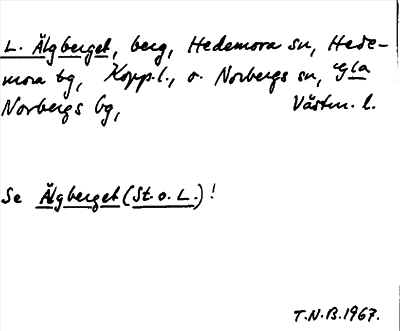 L. Älgberget, berg, Hedemora sn, Hede-
mora bg, Kopp.l., o. Norbergs sn, Gla
Norbergs bg, Västm. l.
Se Älgberget (St. o. L.)!
T.N.B. 1967.